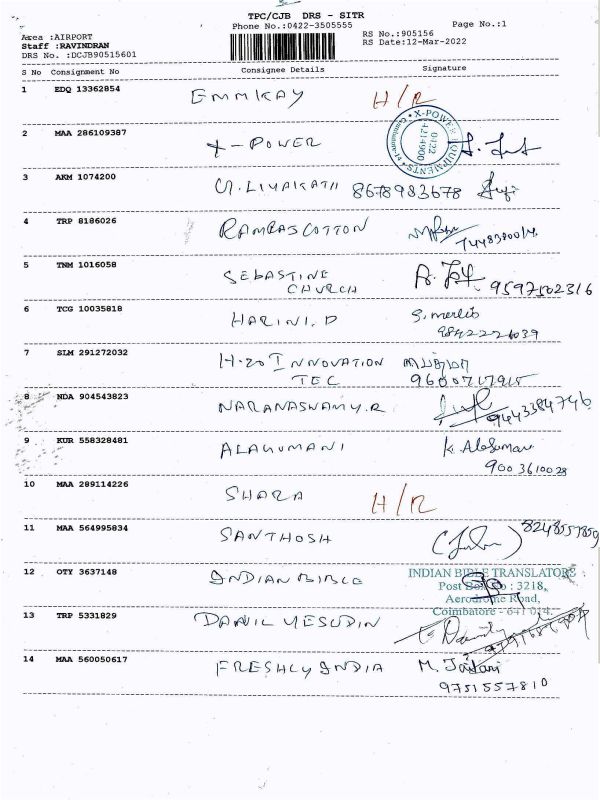 TPC/CJB DRS - SITR
Phone No.:0422-3505555
Page No.:1
Area :AIRPORT
Staff :RAVINDRAN
DRS No. :DCJB90515601
RS No.:905156
RS Date:12-Mar-2022
S No Consignment No Consignee Details Signature
1 EDQ 13362854 EMMKAY H/R
2 MAA 286109387 X-POWER
X-POWER EQUIPMENTS
0422
4214900
3 AKM 1074200 M.LIYAKATH 8678983678
4 TRP 8186026 RAMRAJ COTTON
5 TNM 1016058 SEBASTINE
CHURCH
9597502316
6 TCG 10035818 HARINI.D
7 SLM 291272032 H-20 INNOVATION
TEC
8 NDA 904543823 NARANASWAMY.R 9443384746
9 KUR 558328481 ALAGUMANI
9003610028
10 MAA 289114226 SHARA H/R
11 MAA 564995834 SANTHOSH
12 OTY 3637148 INDIAN BIBLE
INDIAN BIBLE TRANSLATORS
Post Box No : 3218,
Aerodrome Road,
Coimbatore - 641 014.
13 TRP 5331829 DANIL YESUDIN
14 MAA 560050617 FRESHLY INDIA
9751557810